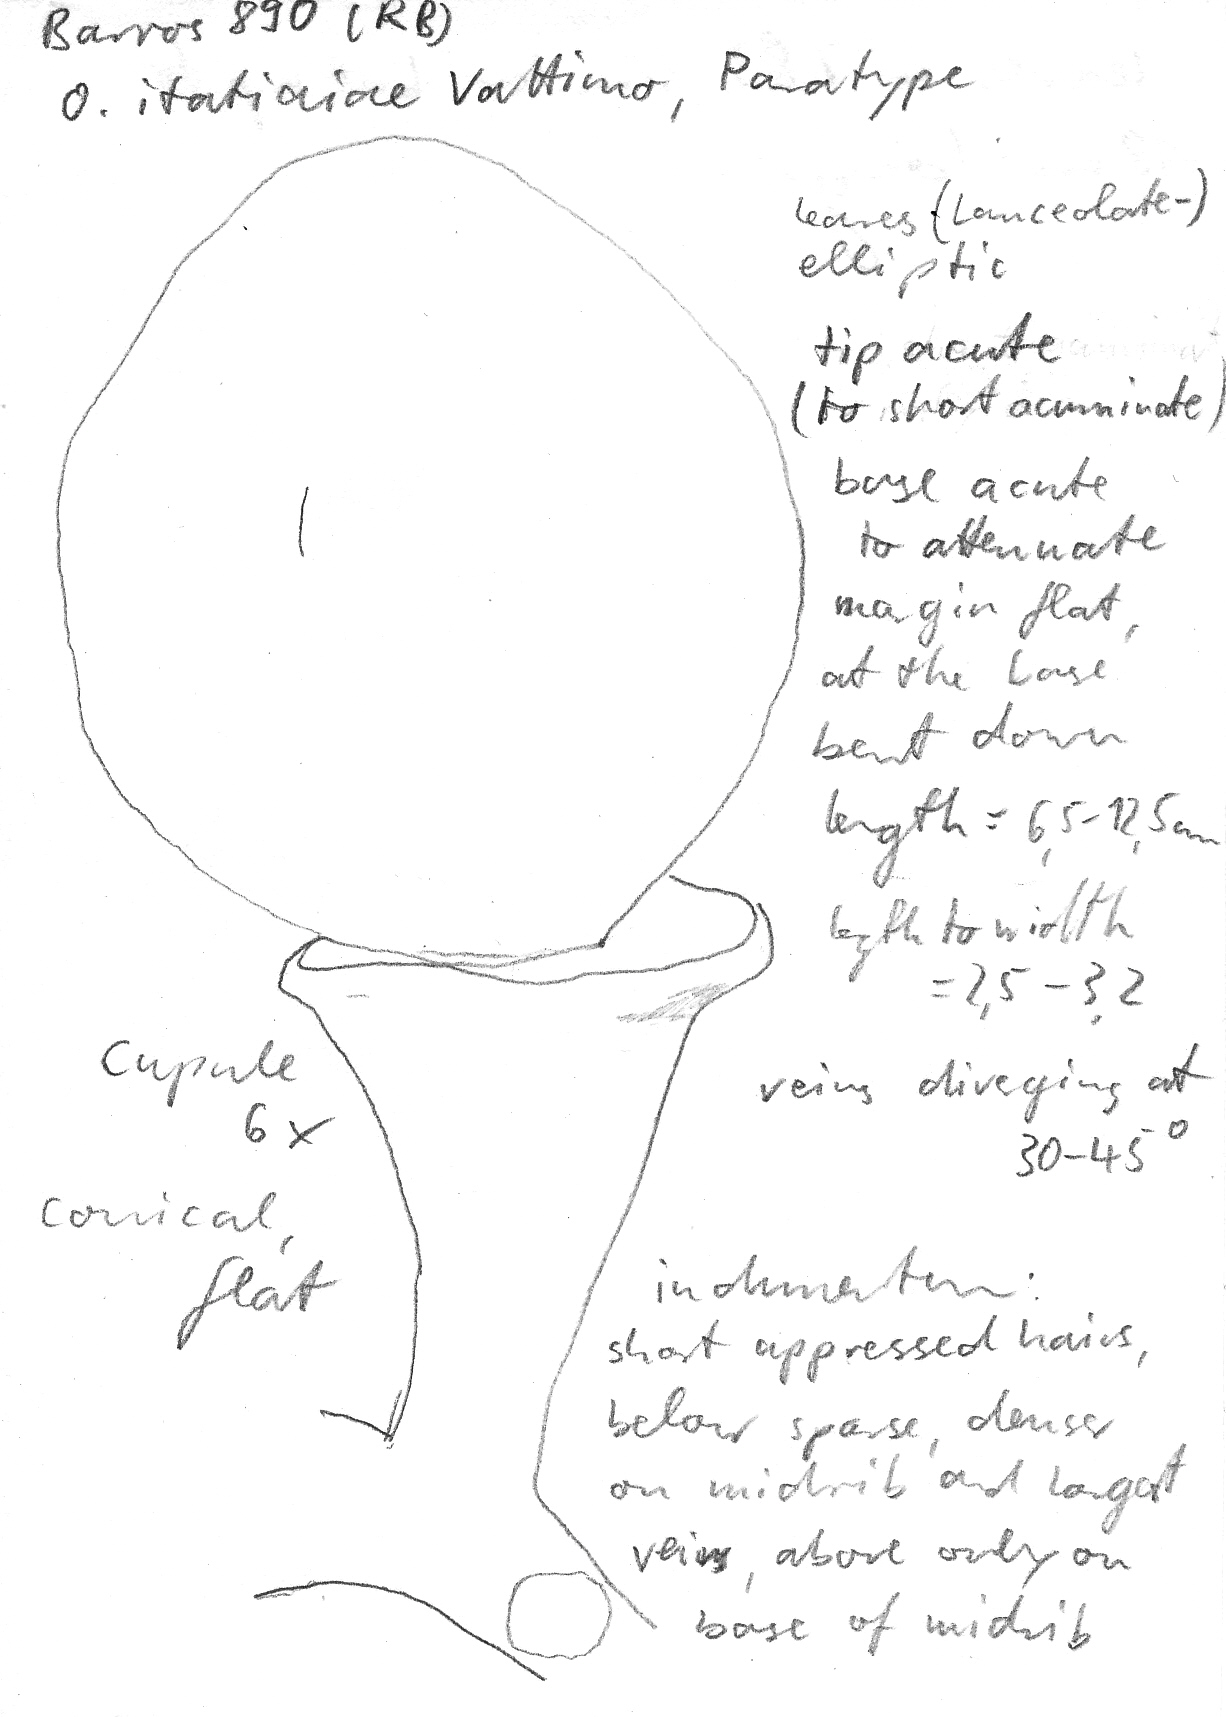 Barros 890 (RB)
O. itatiaiae Vattimo, Paratype
leaves (Lanceolate-)
elliptic
tip acute
(to short acuminate)
base acute
to attenuate
margin flat,
at the base
bent down
length = 6,5-12,5cm
lgth to width
= 2,5 - 3,2
veins diverging at
30-45°
Cupule
6 x
conical,
flat
indumentum:
short appressed hairs,
below sparse, denser
on midrib and largest
veins, above only on
base of midrib